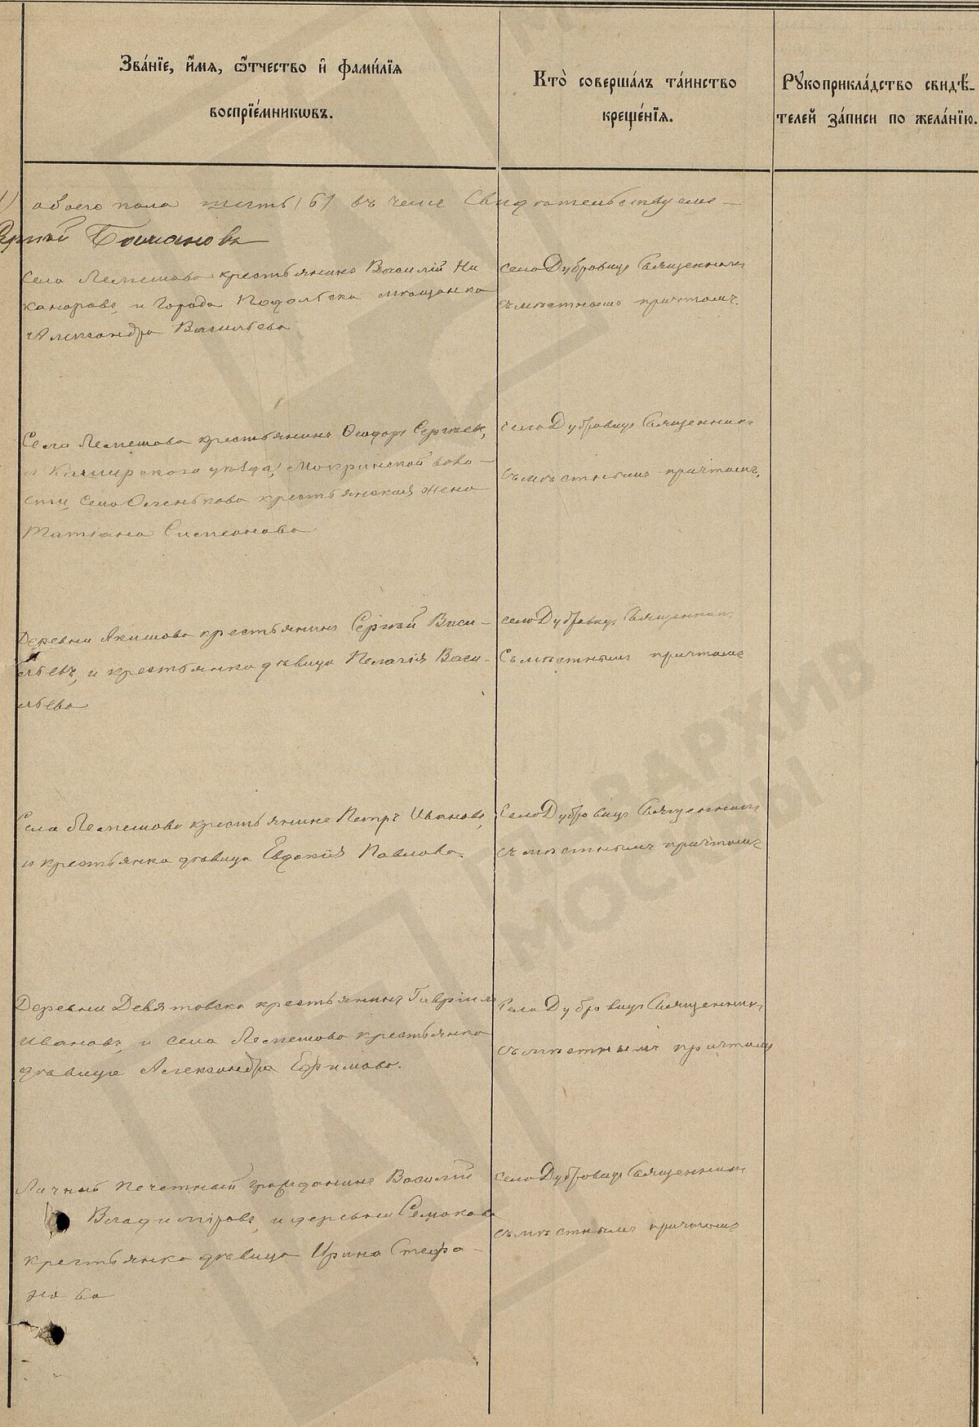 Зва́нїе, и҆́мѧ, ѻ҆́тчество и҆ фами́лїѧ
воспрїе́мникѡвъ.
Кто̀ соверша́лъ та́инство
креще́нїѧ.
Рꙋкоприкла́дство свидѣ́-
телей за́писи по жела́нїю.
обоего пола шесть (6) въ чемъ Свидѣтельствуемъ —
Села Лемешова крестьянинъ Василій Ни
каноровъ, и Города Подольска мѣщанка
Александра Васильева
село Дубровицъ Священникъ
съ мѣстнымъ причтомъ.
Села Лемешова крестьянинъ Ѳеодоръ Сергѣевъ,
и Каширскаго уѣзда, воло-
сти, села крестьянская жена
Татіана Симеонова
село Дубровицъ Священникъ
съ мѣстнымъ причтомъ.
Деревни Якишова крестьянинъ Сергій Васи-
льевъ, и крестьянка дѣвица Пелагія Васи-
льева
село Дубровицъ Священникъ
Съ мѣстнымъ причтомъ
Села Лемешова крестьянинъ Петръ Ивановъ,
и крестьянка дѣвица Евдокія Павлова.
Село Дубровицъ Священникъ
съ мѣстнымъ причтомъ
Деревни Девятовска крестьянинъ Гавріилъ
Ивановъ, и села Лемешова крестьянка
дѣвица Александра Ефимова.
Села Дубровицъ Священникъ,
съ мѣстнымъ причтомъ
Личный Почетный гражданинъ Василій
Владиміровъ, и деревни
крестьянка дѣвица Ирина Стефа-
нова
село Дубровицъ Священникъ
съ мѣстнымъ причтомъ
АРХИВ
МОСКВЫ